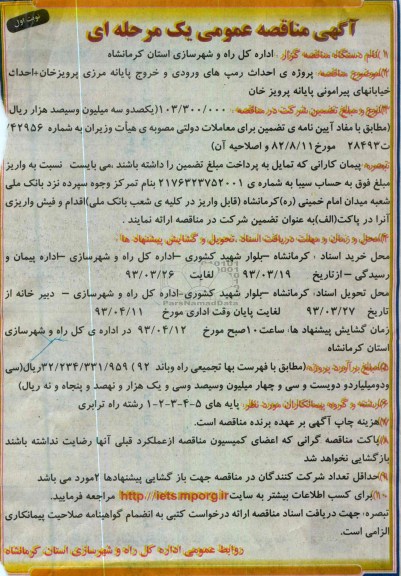 نوبت اول
آگهی مناقصه عمومی یک مرحله ای
۱) نام دستگاه مناقصه گزار : اداره کل راه و شهرسازی استان کرمانشاه
۲) موضوع مناقصه: پروژه ی احداث رمپ های ورودی و خروج پایانه مرزی پرویزخان+احداث
خیابانهای پیرامونی پایانه پرویز خان
۳) نوع و مبلغ تضمین شرکت در مناقصه : ۱۰۳/۳۰۰/۰۰۰(یکصدو سه میلیون وسیصد هزار ریال
(مطابق با مفاد آیین نامه ی تضمین برای معاملات دولتی مصوبه ی هیأت وزیران به شماره ۴۲۹۵۶/
ت۲۸۴۹۳ مورخ۸۲/۸/۱۱ و اصلاحیه آن)
تبصره: پیمان کارانی که تمایل به پرداخت مبلغ تضمین را داشته باشند .می بایست نسبت به واریز
مبلغ فوق به حساب سیبا به شماره ی ۲۱۷۶۳۲۳۷۵۲۰۰۱ بنام تمرکز وجوه سپرده نزد بانک ملی
شعبه میدان امام خمینی (ره)کرمانشاه (قابل واریز در کلیه ی شعب بانک ملی)اقدام و فیش واریزی
آنرا در پاکت(الف)به عنوان تضمین شرکت در مناقصه ارائه نمایند .
۴) محل و زمان و مهلت دریافت اسناد .تحویل و گشایش پیشنهاد ها :
محل خرید اسناد : کرمانشاه –بلوار شهید کشوری –اداره کل راه و شهرسازی –اداره پیمان و
رسیدگی – ازتاریخ ۹۳/۰۳/۱۹ لغایت ۹۳/۰۳/۲۶
محل تحویل اسناد: کرمانشاه –بلوار شهید کشوری–اداره کل راه و شهرسازی – دبیر خانه از
تاریخ ۹۳/۰۳/۲۷ لغایت پایان وقت اداری مورخ ۹۳/۰۴/۱۱
زمان گشایش پیشنهاد ها: ساعت۱۰صبح مورخ ۹۳/۰۴/۱۲ در اداره ی کل راه و شهرسازی
استان کرمانشاه
۵) مبلغ برآورد پروژه:(مطابق با فهرست بها تجمیعی راه وباند ۹۲ )۳۲/۲۳۴/۳۳۱/۹۵۹ریال(سی
ودومیلیاردو دویست و سی و چهار میلیون وسیصد وسی و یک هزار و نهصد و پنجاه و نه ریال)
۶) رشته و گروه پیمانکاران مورد نظر: پایه های ۵-۴-۳-۲-۱ رشته راه ترابری
۷) هزینه چاپ آگهی بر عهده برنده مناقصه است.
۸) پاکت مناقصه گرانی که اعضای کمیسیون مناقصه ازعملکرد قبلی آنها رضایت نداشته باشند
بازگشایی نخواهد شد
۹) حداقل تعداد شرکت کنندگان در مناقصه جهت باز گشایی پیشنهادها ۲مورد می باشد
۱۰) برای کسب اطلاعات بیشتر به سایت http://iets.mporg.ir مراجعه فرمایید.
تبصره: جهت دریافت اسناد مناقصه ارائه درخواست کتبی به انضمام گواهینامه صلاحیت پیمانکاری
الزامی است.
روابط عمومی اداره کل راه و شهرسازی استان کرمانشاه